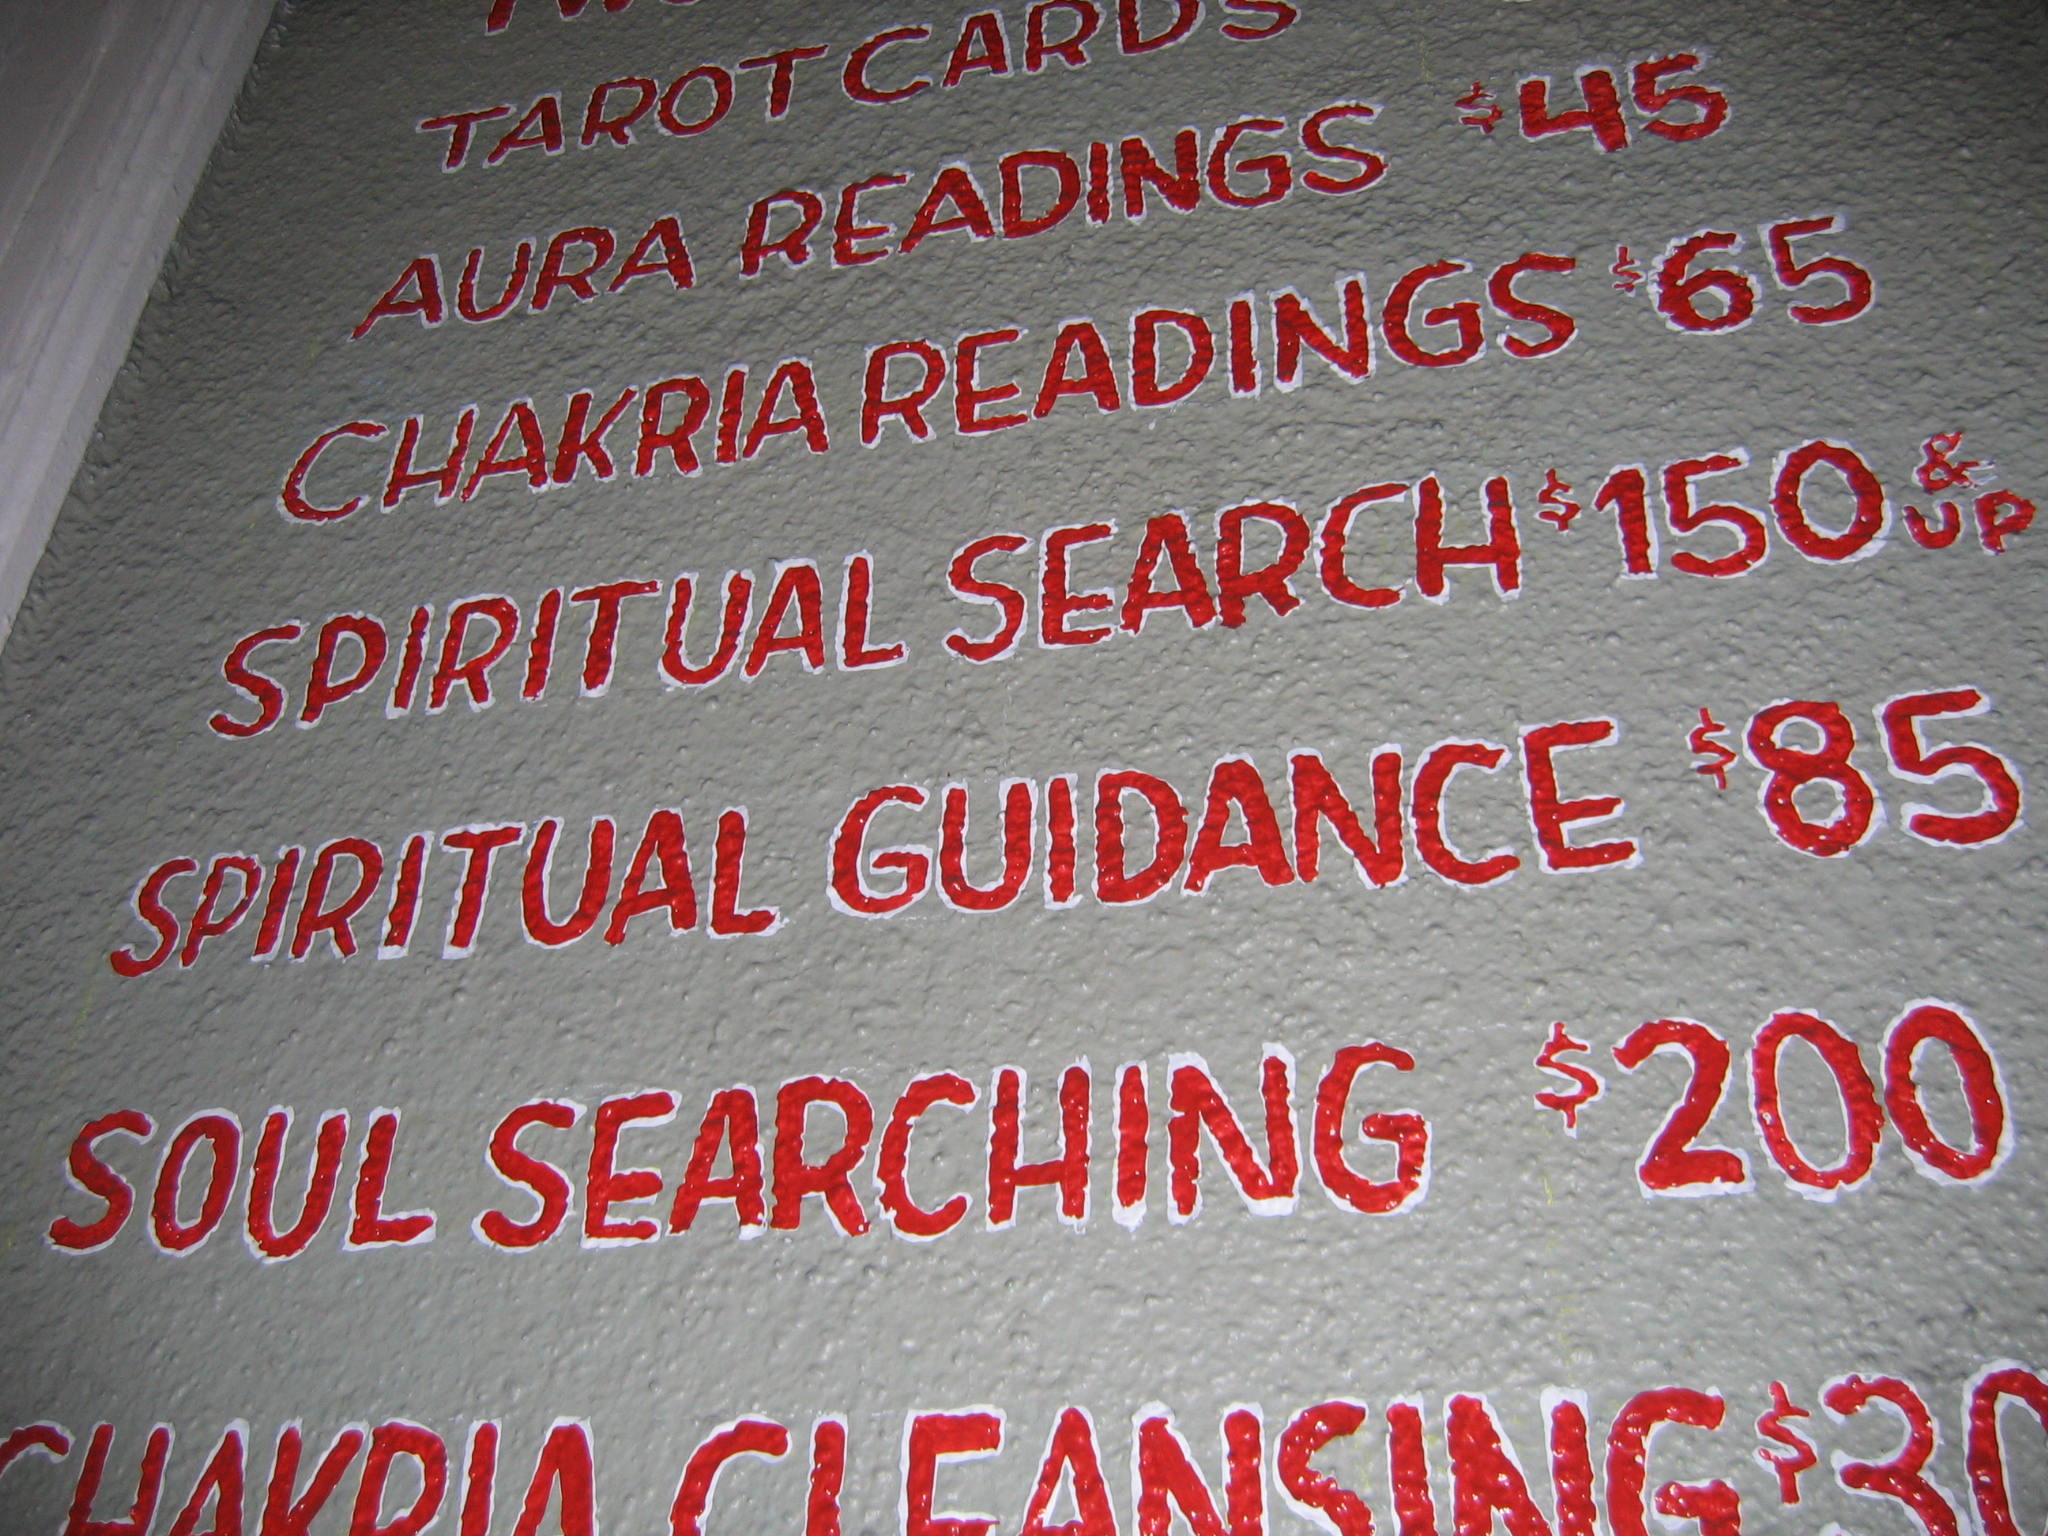 TAROT CARDS
AURA READINGS $45
CHAKRIA READINGS $65
SPIRITUAL SEARCH $150 & UP
SPIRITUAL GUIDANCE $85
SOUL SEARCHING $200
CHAKRIA CLEANSING